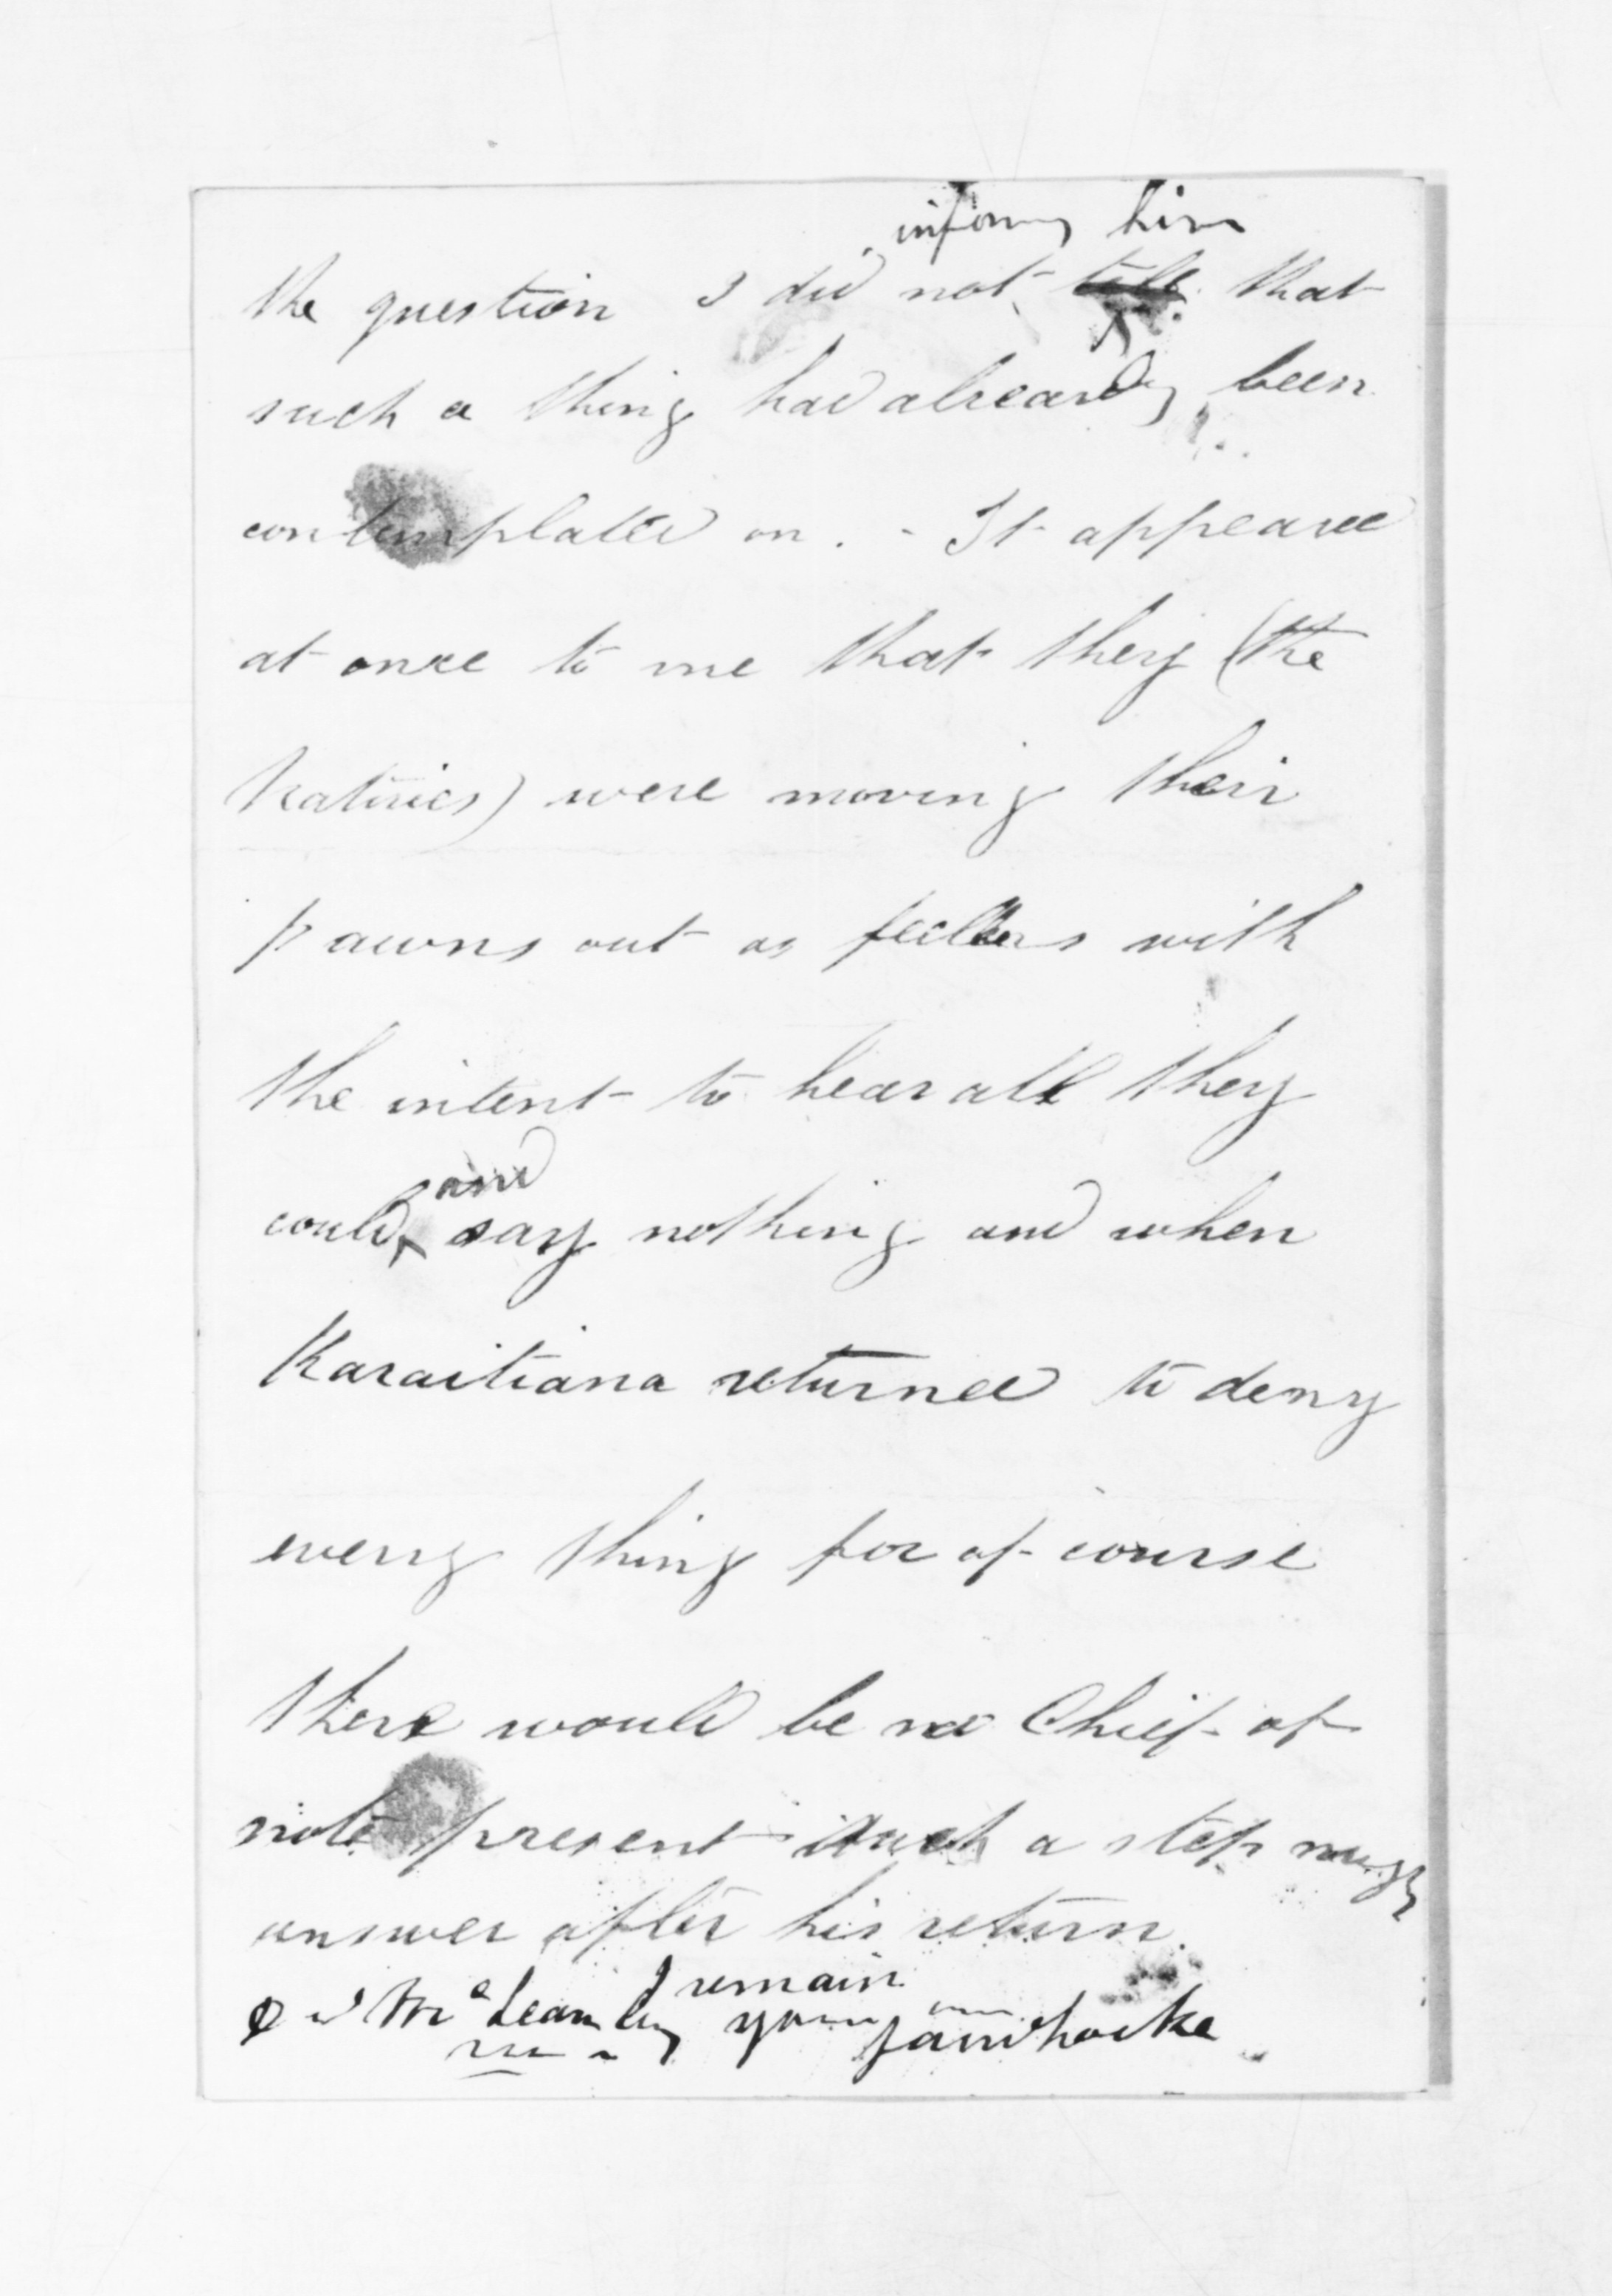 inform him
the question I did not tell that
such a thing had already been
contemplated on. - It appeared
at once to me that they (the
Natives) were moving their
pawns out as feelers with
the intent to hear all they
and
could say nothing and when
Karaitiana returned to deny
every thing for of course
there would be no Chief of
note present such a step
answer after his return.
I remain
McLean yours